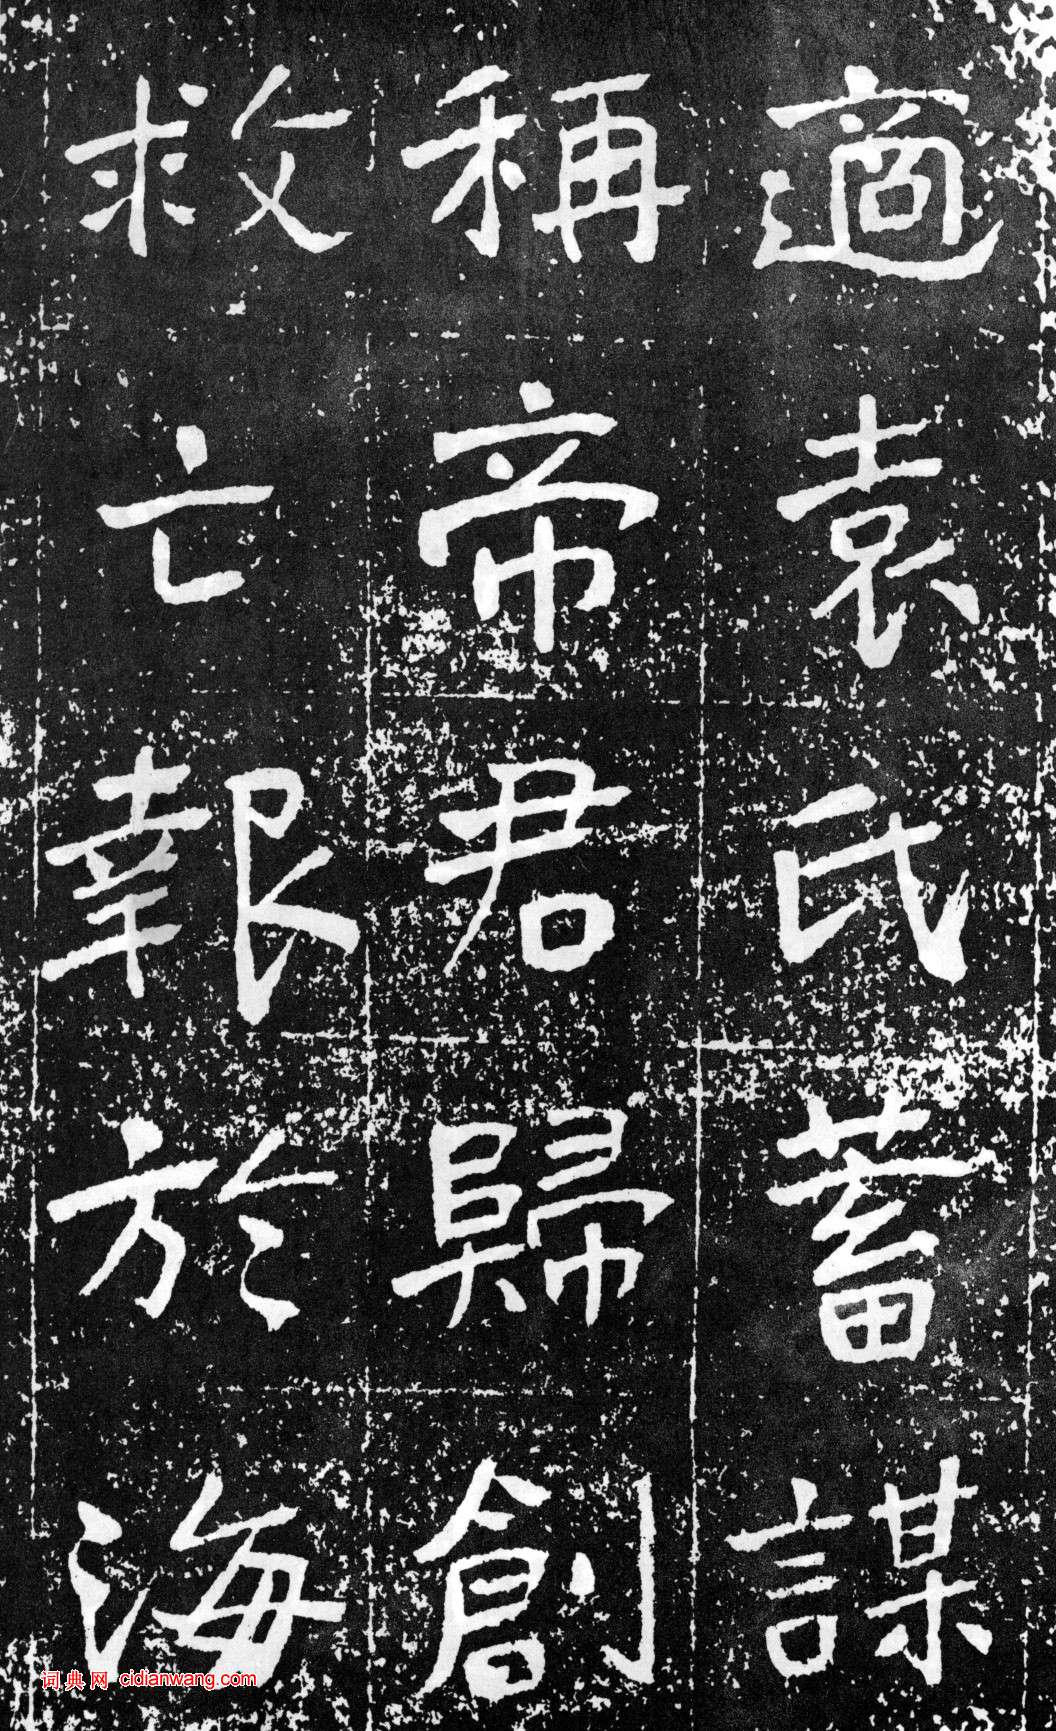 適袁氏蓄謀
稱帝君歸創
救亡報於海
词典网 cidianwang.com